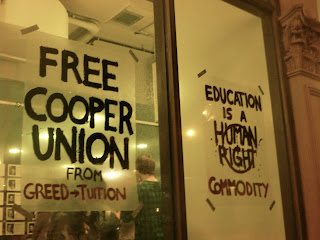 FREE
COOPER
UNION
FROM
GREED→TUITION
EDUCATION
IS A
HUMAN
RIGHT
COMMODITY